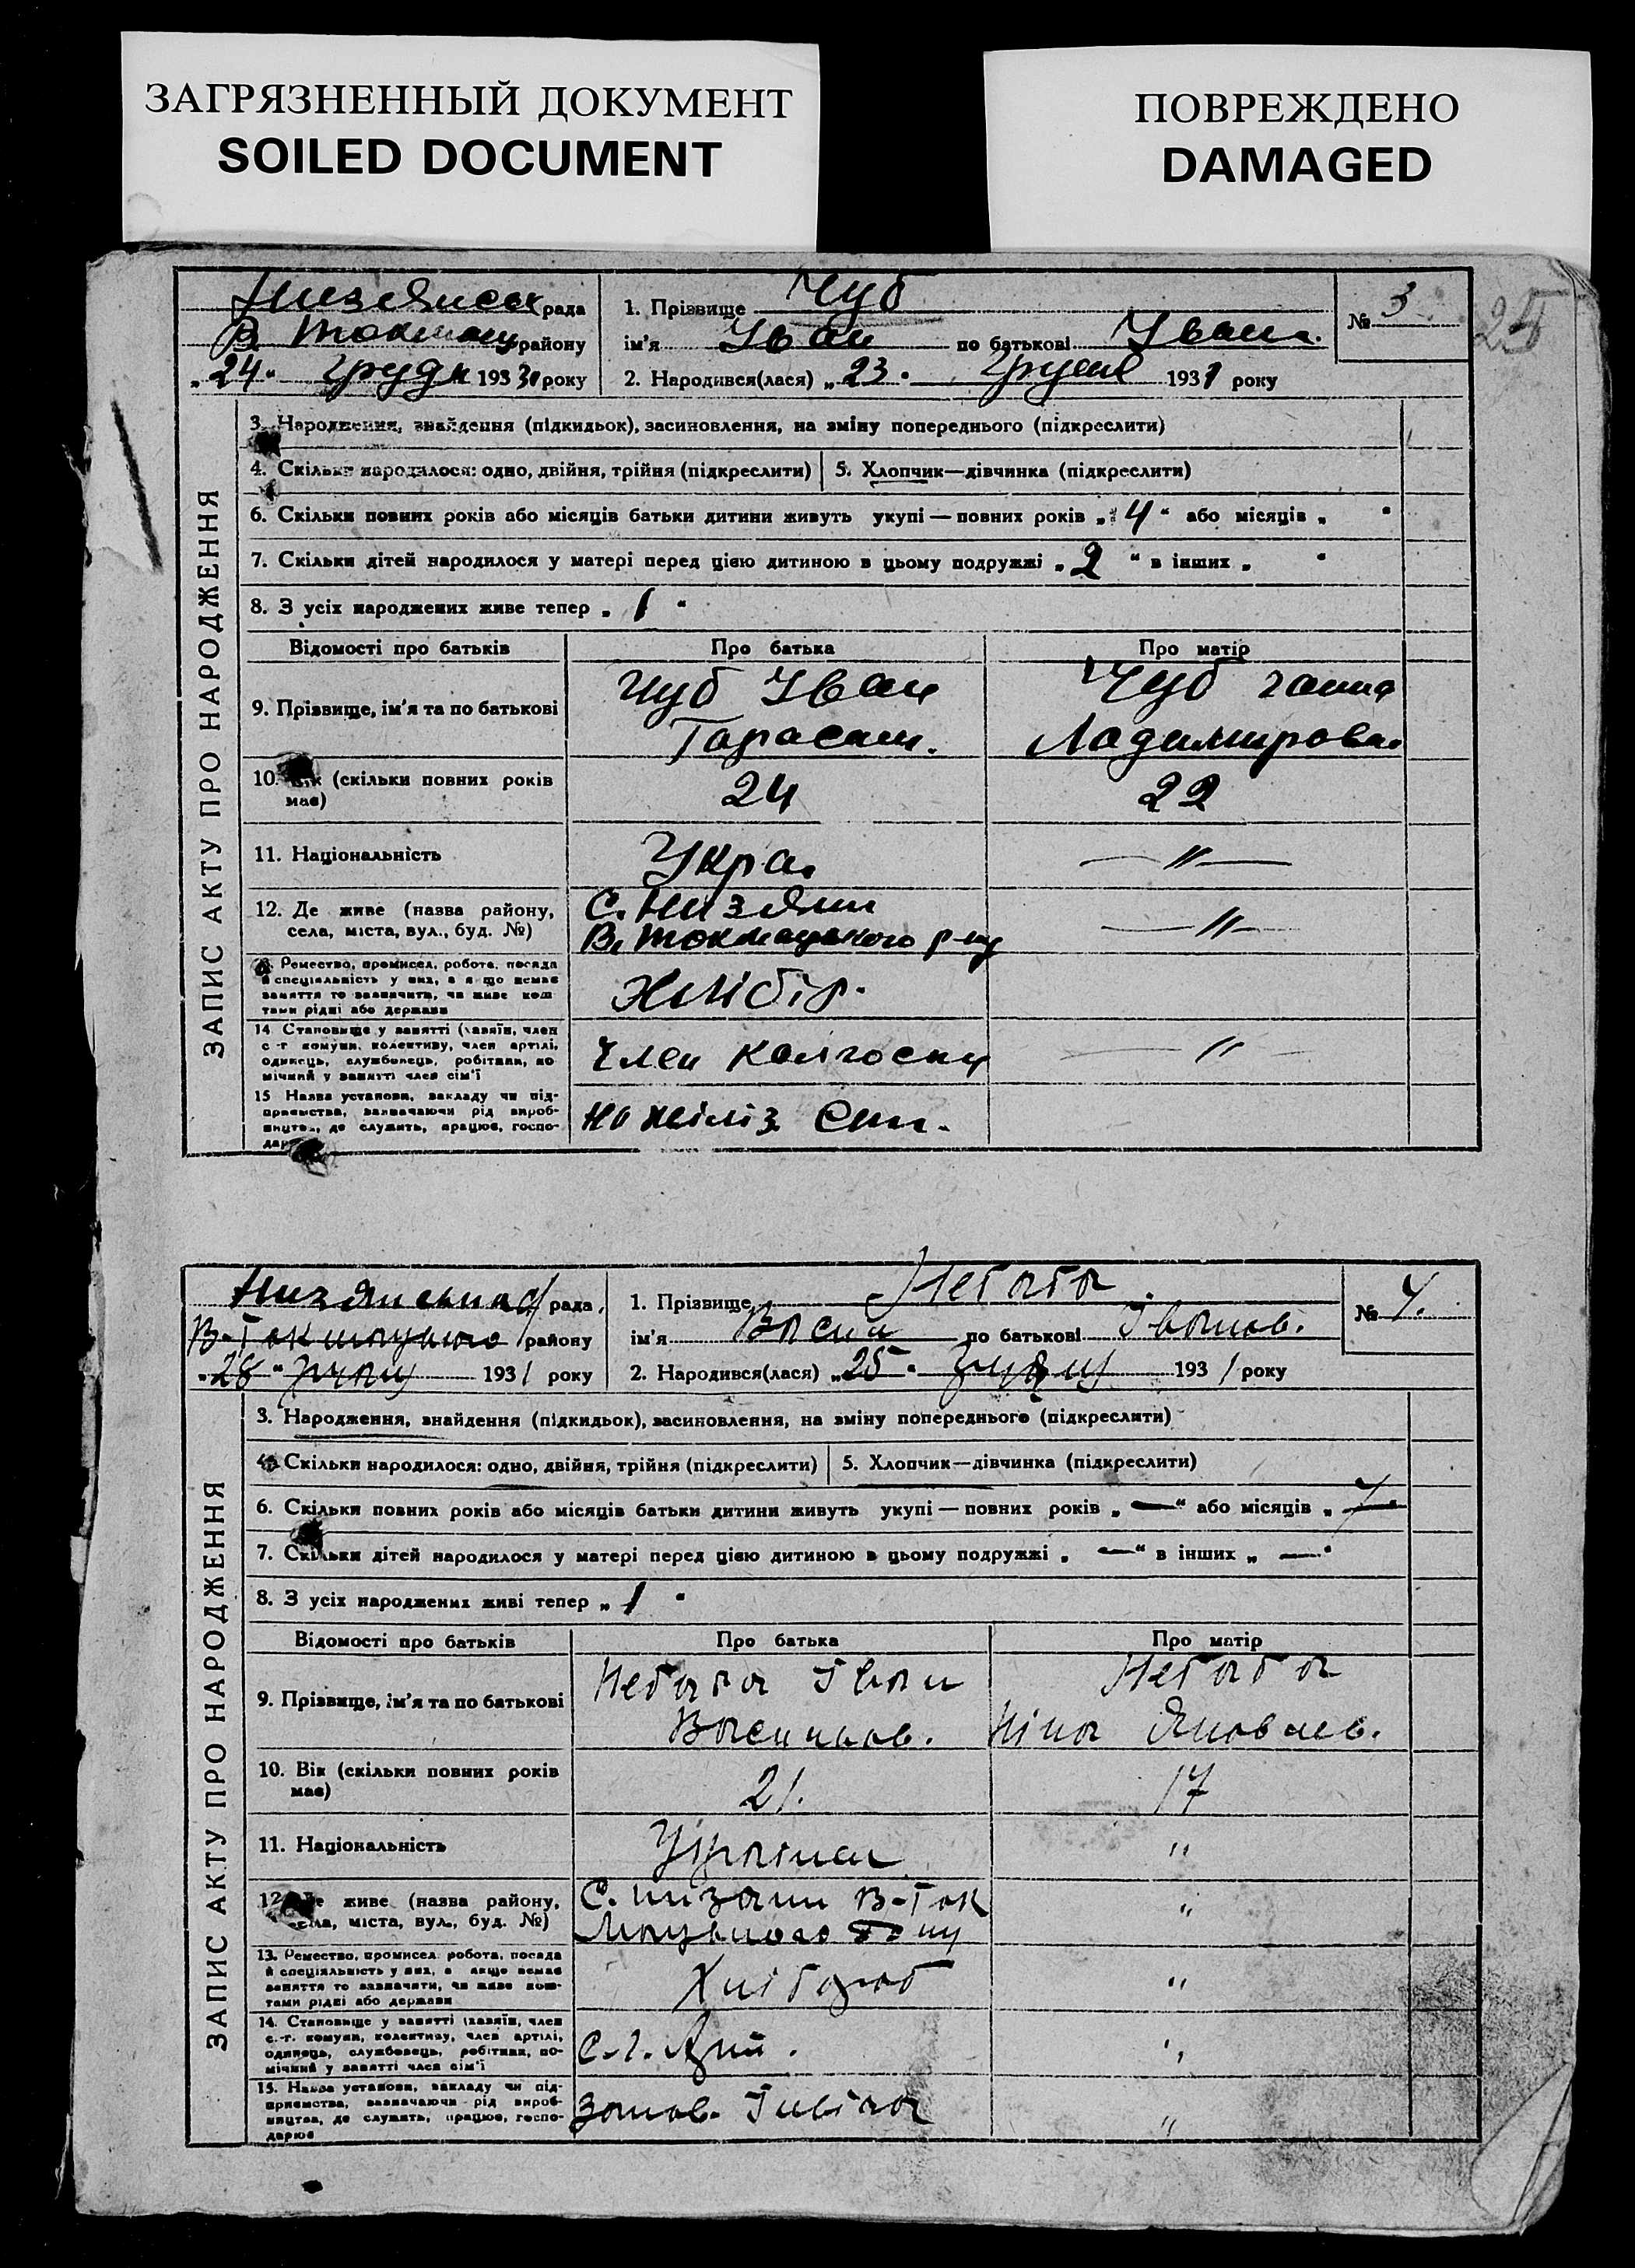 ЗАГРЯЗНЕННЫЙ ДОКУМЕНТ
SOILED DOCUMENT
ПОВРЕЖДЕНО
DAMAGED
25
рада
В. Токмац району
„24“ Грудн 193 року
1. Прізвище Чуб
ім'я Іван по батькові Іван.
2. Народився(лася) „23“ Грудня 1931 року
№ 3
ЗАПИС АКТУ ПРО НАРОДЖЕННЯ
3. Народження, знайдення (підкидьок), засиновлення, на зміну попереднього (підкреслити)
4. Скільки народилося: одно, двійня, трійня (підкреслити) 5. Хлопчик—дівчинка (підкреслити)
6. Скільки повних років або місяців батьки дитини живуть укупі — повних років „4“ або місяців „ “
7. Скільки дітей народилося у матері перед цією дитиною в цьому подружжі „2“ в інших „ “
8. З усіх народжених живе тепер „1“
Відомості про батьків Про батька Про матір
9. Прізвище, ім'я та по батькові Чуб Іван Чуб Ганна
Тарасан. Ладимирова
10. Вік (скільки повних років має) 24 22
11. Національність Укра. —〃—
12. Де живе (назва району, С. Низяни —〃—
села, міста, вул., буд. №) В. Токмацького р-ну
13. Ремество, промисел, робота, посада
й спеціяльність у них, а якщо немає
заняття то зазначити, чи живе кош-
тами рідні або держави
Хлібор.
14 Становище у занятті (хазяїн, член
с.-г. комуни, колективу, член артілі,
одинець, службовець, робітник, по-
мічний у занятті член сім'ї
Член колгоспу —〃—
15 Назва установи, закладу чи під-
приємства, зазначаючи рід вироб-
ництва, де служить, працює, госпо-
дарює
рада
В-Токмацького району
„28“ 1931 року
1. Прізвище Небаба
ім'я Василь по батькові Іванов.
2. Народився(лася) „25“ Грудня 1931 року
№ 4.
ЗАПИС АКТУ ПРО НАРОДЖЕННЯ
3. Народження, знайдення (підкидьок), засиновлення, на зміну попереднього (підкреслити)
4. Скільки народилося: одно, двійня, трійня (підкреслити) 5. Хлопчик—дівчинка (підкреслити)
6. Скільки повних років або місяців батьки дитини живуть укупі — повних років „—“ або місяців „7“
7. Скільки дітей народилося у матері перед цією дитиною в цьому подружжі „—“ в інших „—“
8. З усіх народжених живі тепер „1“
Відомості про батьків Про батька Про матір
9. Прізвище, ім'я та по батькові Небаба Іван Небаба
Васильов. Ніна Яковлев.
10. Вік (скільки повних років має) 21. 17
11. Національність Україн 〃
12. Де живе (назва району, С. Низяни В-Ток 〃
села, міста, вул., буд. №) мацького
13. Ремество, промисел, робота, посада
й спеціяльність у них, а якщо немає
заняття то зазначити, чи живе кош-
тами рідні або держави
Хлібороб 〃
14. Становище у занятті (хазяїн, член
с.-г. комуни, колективу, член артілі,
одинець, службовець, робітник, по-
мічний у занятті член сім'ї
С.-г. 〃
15. Назва установи, закладу чи під-
приємства, зазначаючи рід вироб-
ництва, де служить, працює, госпо-
дарює
〃